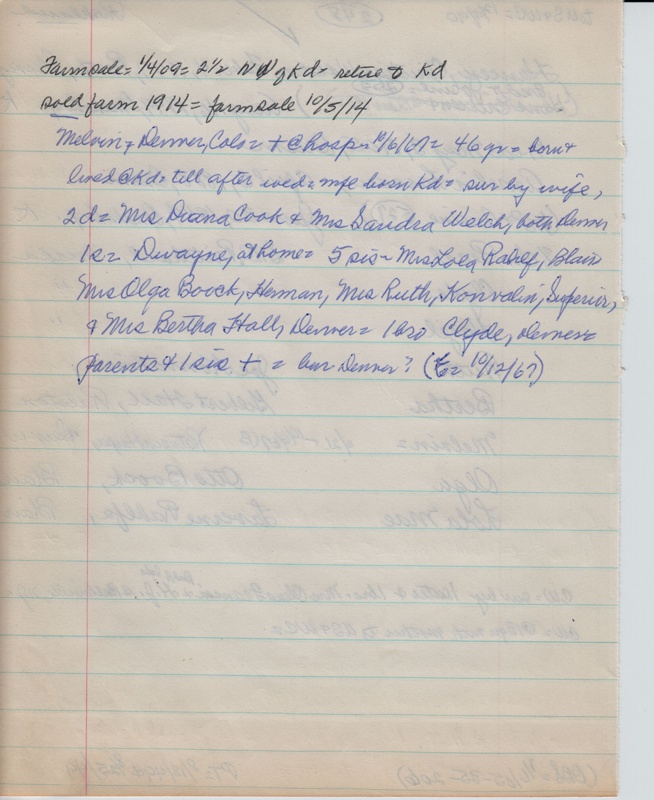 Farmsale = 1/4/09 = 2 1/2 NW of Kd = retire to Kd
sold farm 1914 = farmsale 10/5/14
Melvin, Denver, Colo = + @ hosp = 10/6/67 = 46 yr = born +
lived @ Kd = till after wed = mfe born Kd = sur by wife,
2 d = Mrs Diana Cook & Mrs Sandra Welch, both Denver
1 s = Dwayne, at home = 5 sis = Mrs Lola Rahlf, Blair
Mrs Olga Boock, Herman, Mrs Ruth, Konvalin, Superior,
& Mrs Bertha Hall, Denver = 1 bro Clyde,
parents & 1 sis + = bur Denver? (E = 10/12/67)